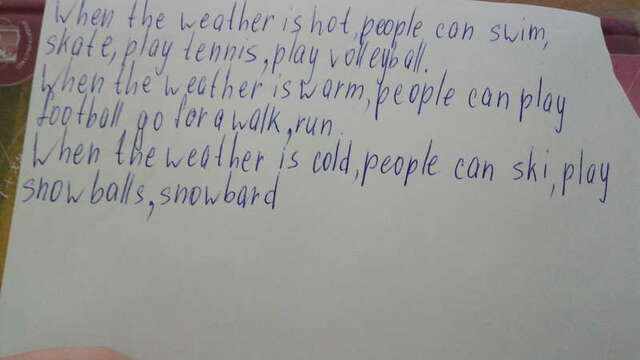 When the weather is hot, people can swim,
skate, play tennis, play volleyball.
When the weather is warm, people can play
football go for a walk, run
When the weather is cold, people can ski, play
snowballs, snowbard